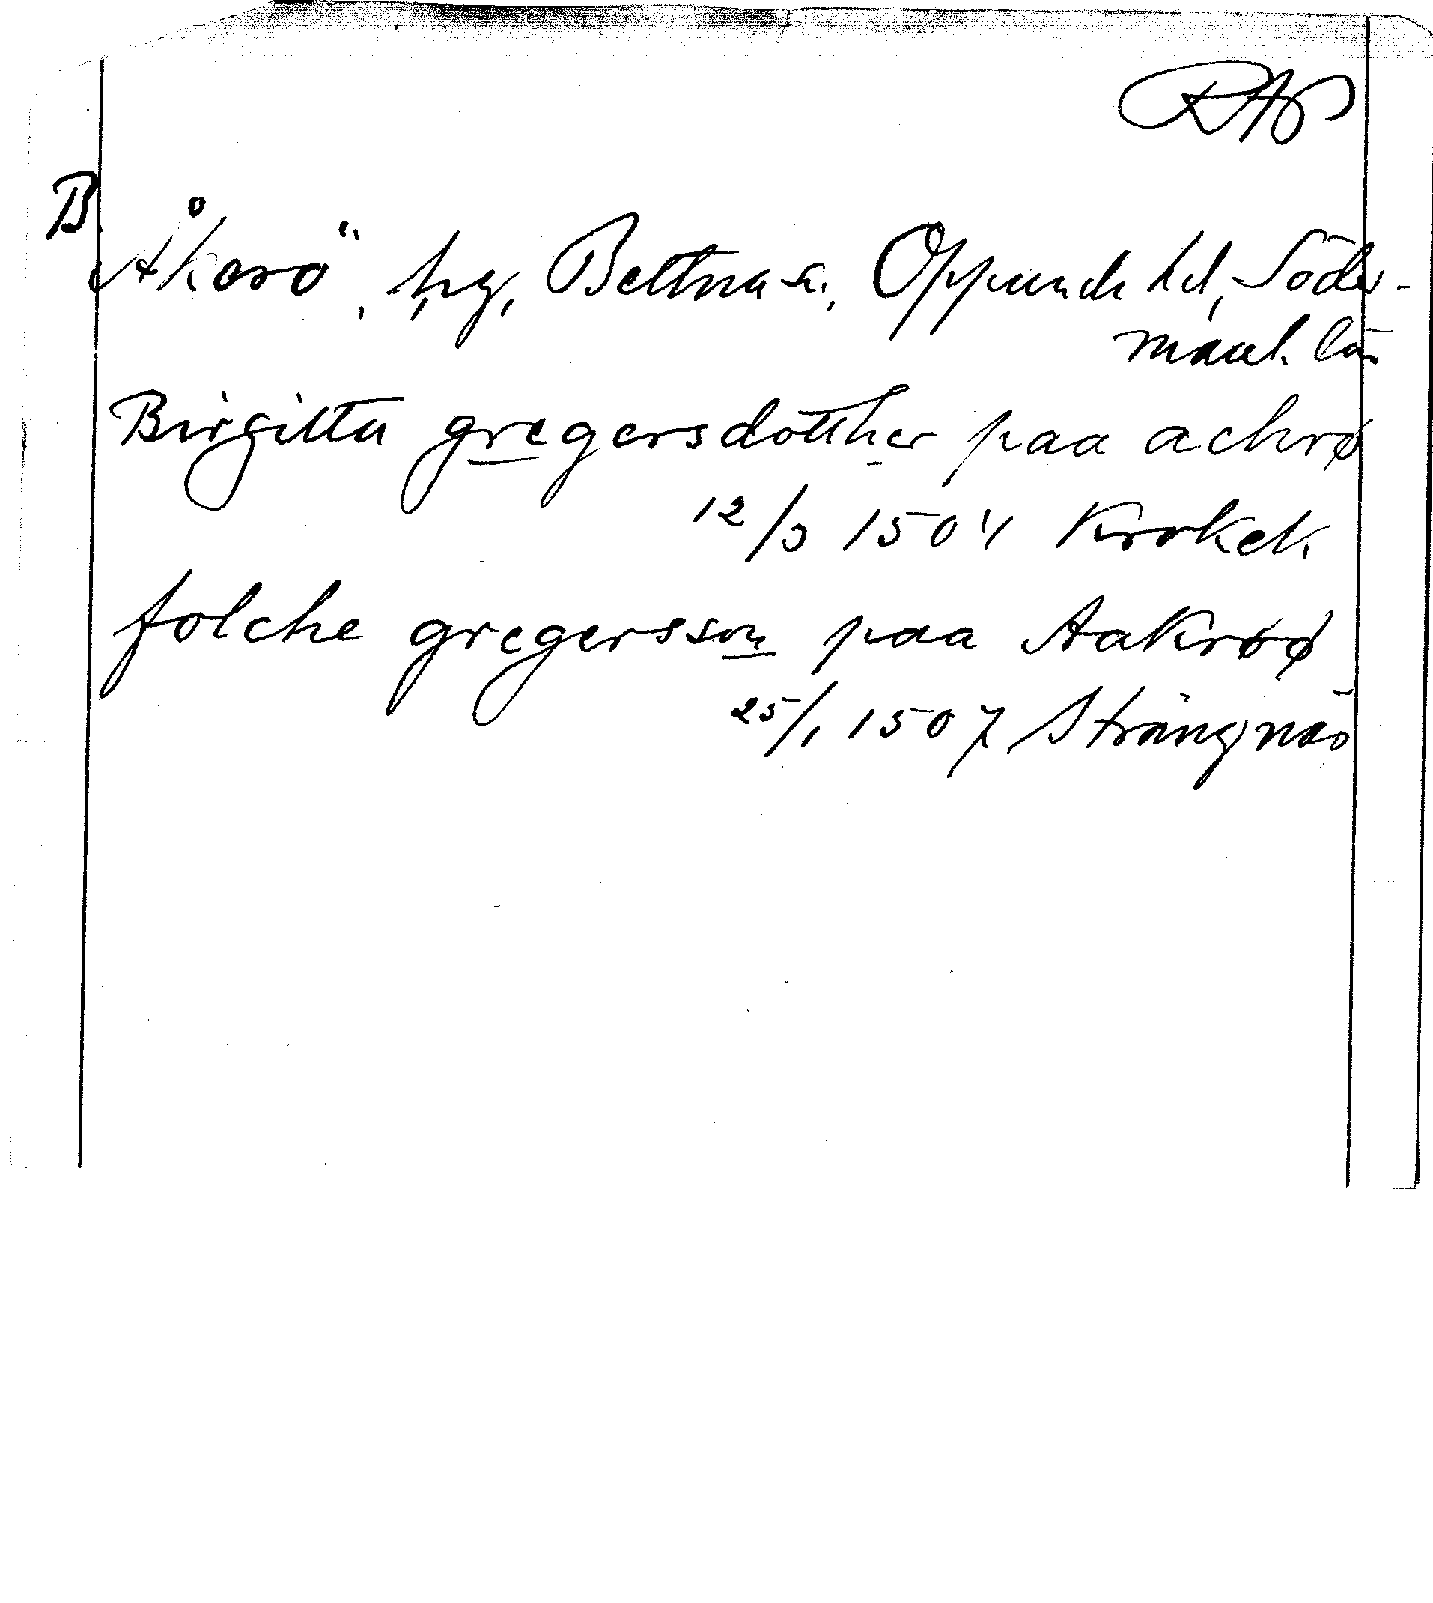 RAP
B.
Åkerö, hg, Bettna sn, Oppunda hd, Söder-
manl. län
Birgitta gregersdotther paa achrø
12/3 1504 Krokek
folche gregersson paa Aakrøø
25/1 1507 Strängnäs